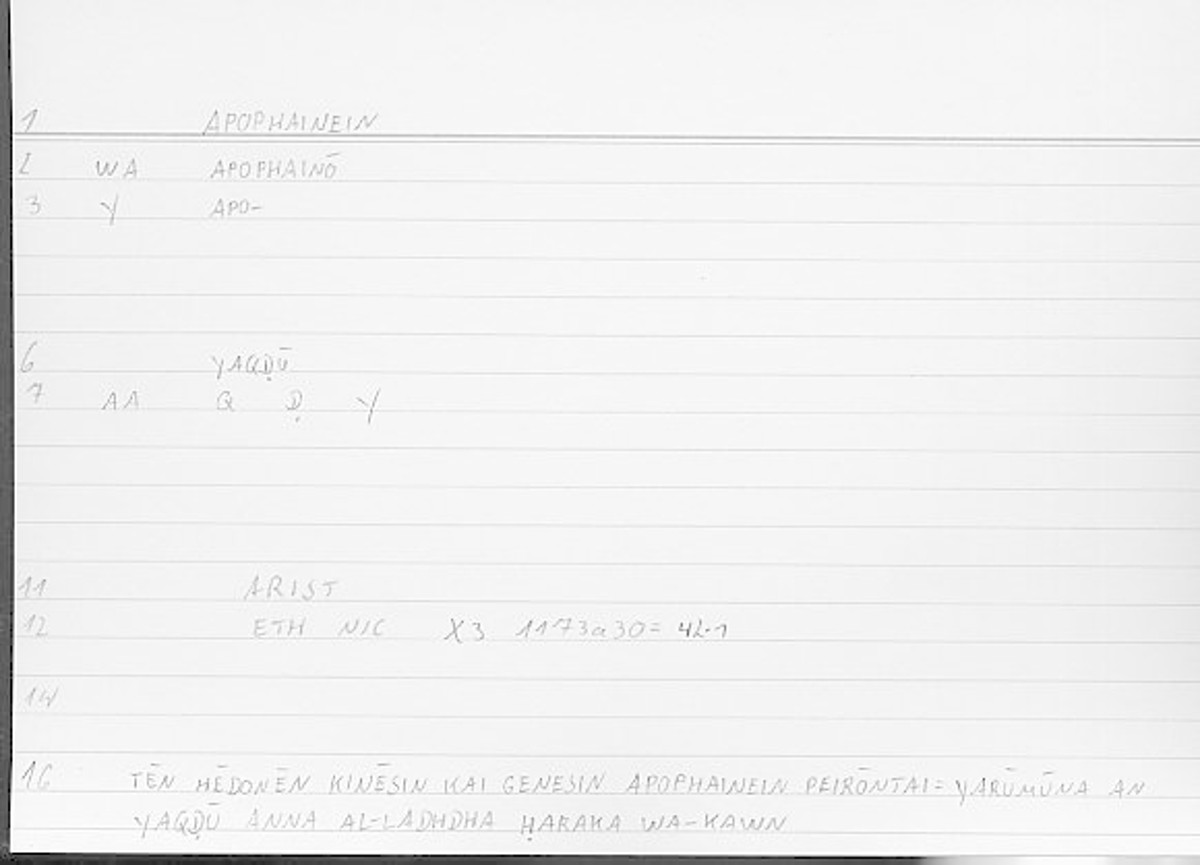 1 APOPHAINEIN
2 WA APOPHAINŌ
3 Y APO-
6 YAQḌŪ
7 AA Q Ḍ Y
11 ARIST
12 ETH NIC X3 1173a30= 42.1
14
16 TĒN HĒDONĒN KINĒSIN KAI GENESIN APOPHAINEIN PEIRŌNTAI= YARŪMŪNA AN
YAQḌŪ ANNA AL-LADHDHA ḤARAKA WA-KAWN